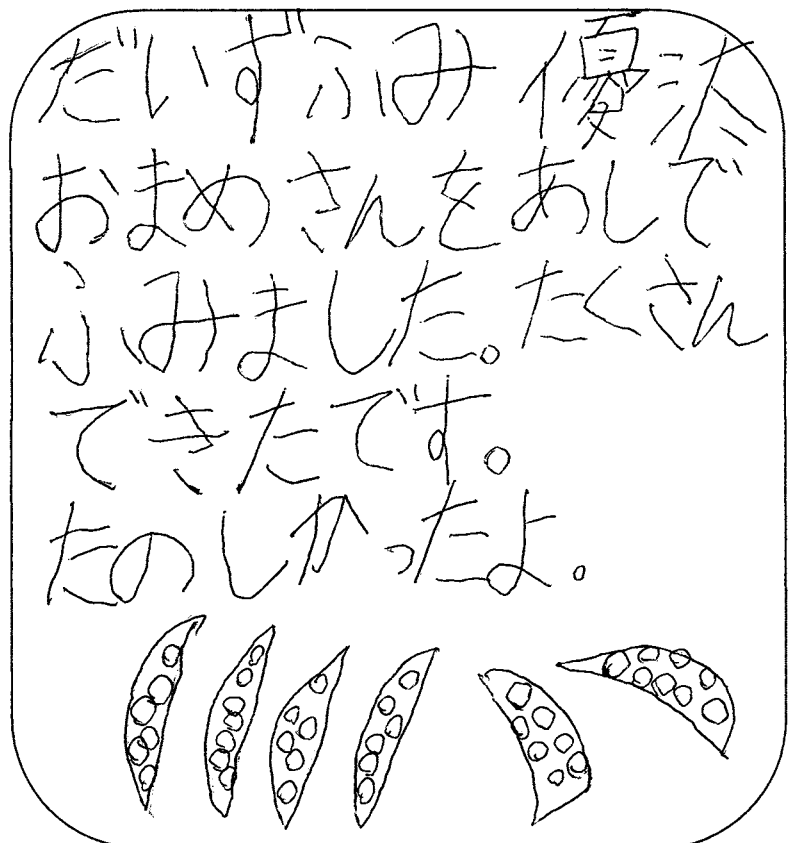 だいずふみ 優法
おまめさんをあしで
ふみました。たくさん
できたです。
たのしかったよ。